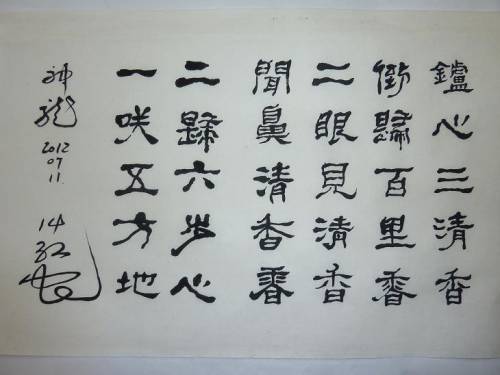 鑪心三清香
衝歸百里香
二眼見清香
聞鼻清香香
二歸六步心
一咲五方地
神龍
2012
07
11
14